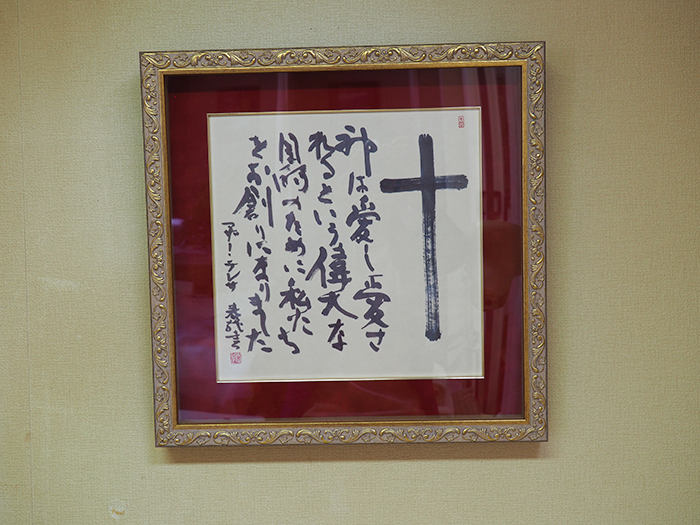 神は愛し愛さ
れるという偉大な
目的のために私たち
をお創りになりました
マザー・テレサ